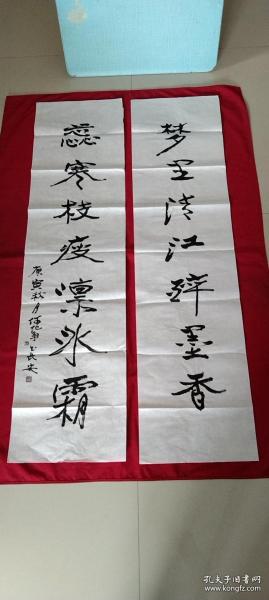 梦里清江醉墨香
蕊寒枝瘦凛冰霜
庚寅秋月
于长安
孔夫子旧书网
www.kongfz.com